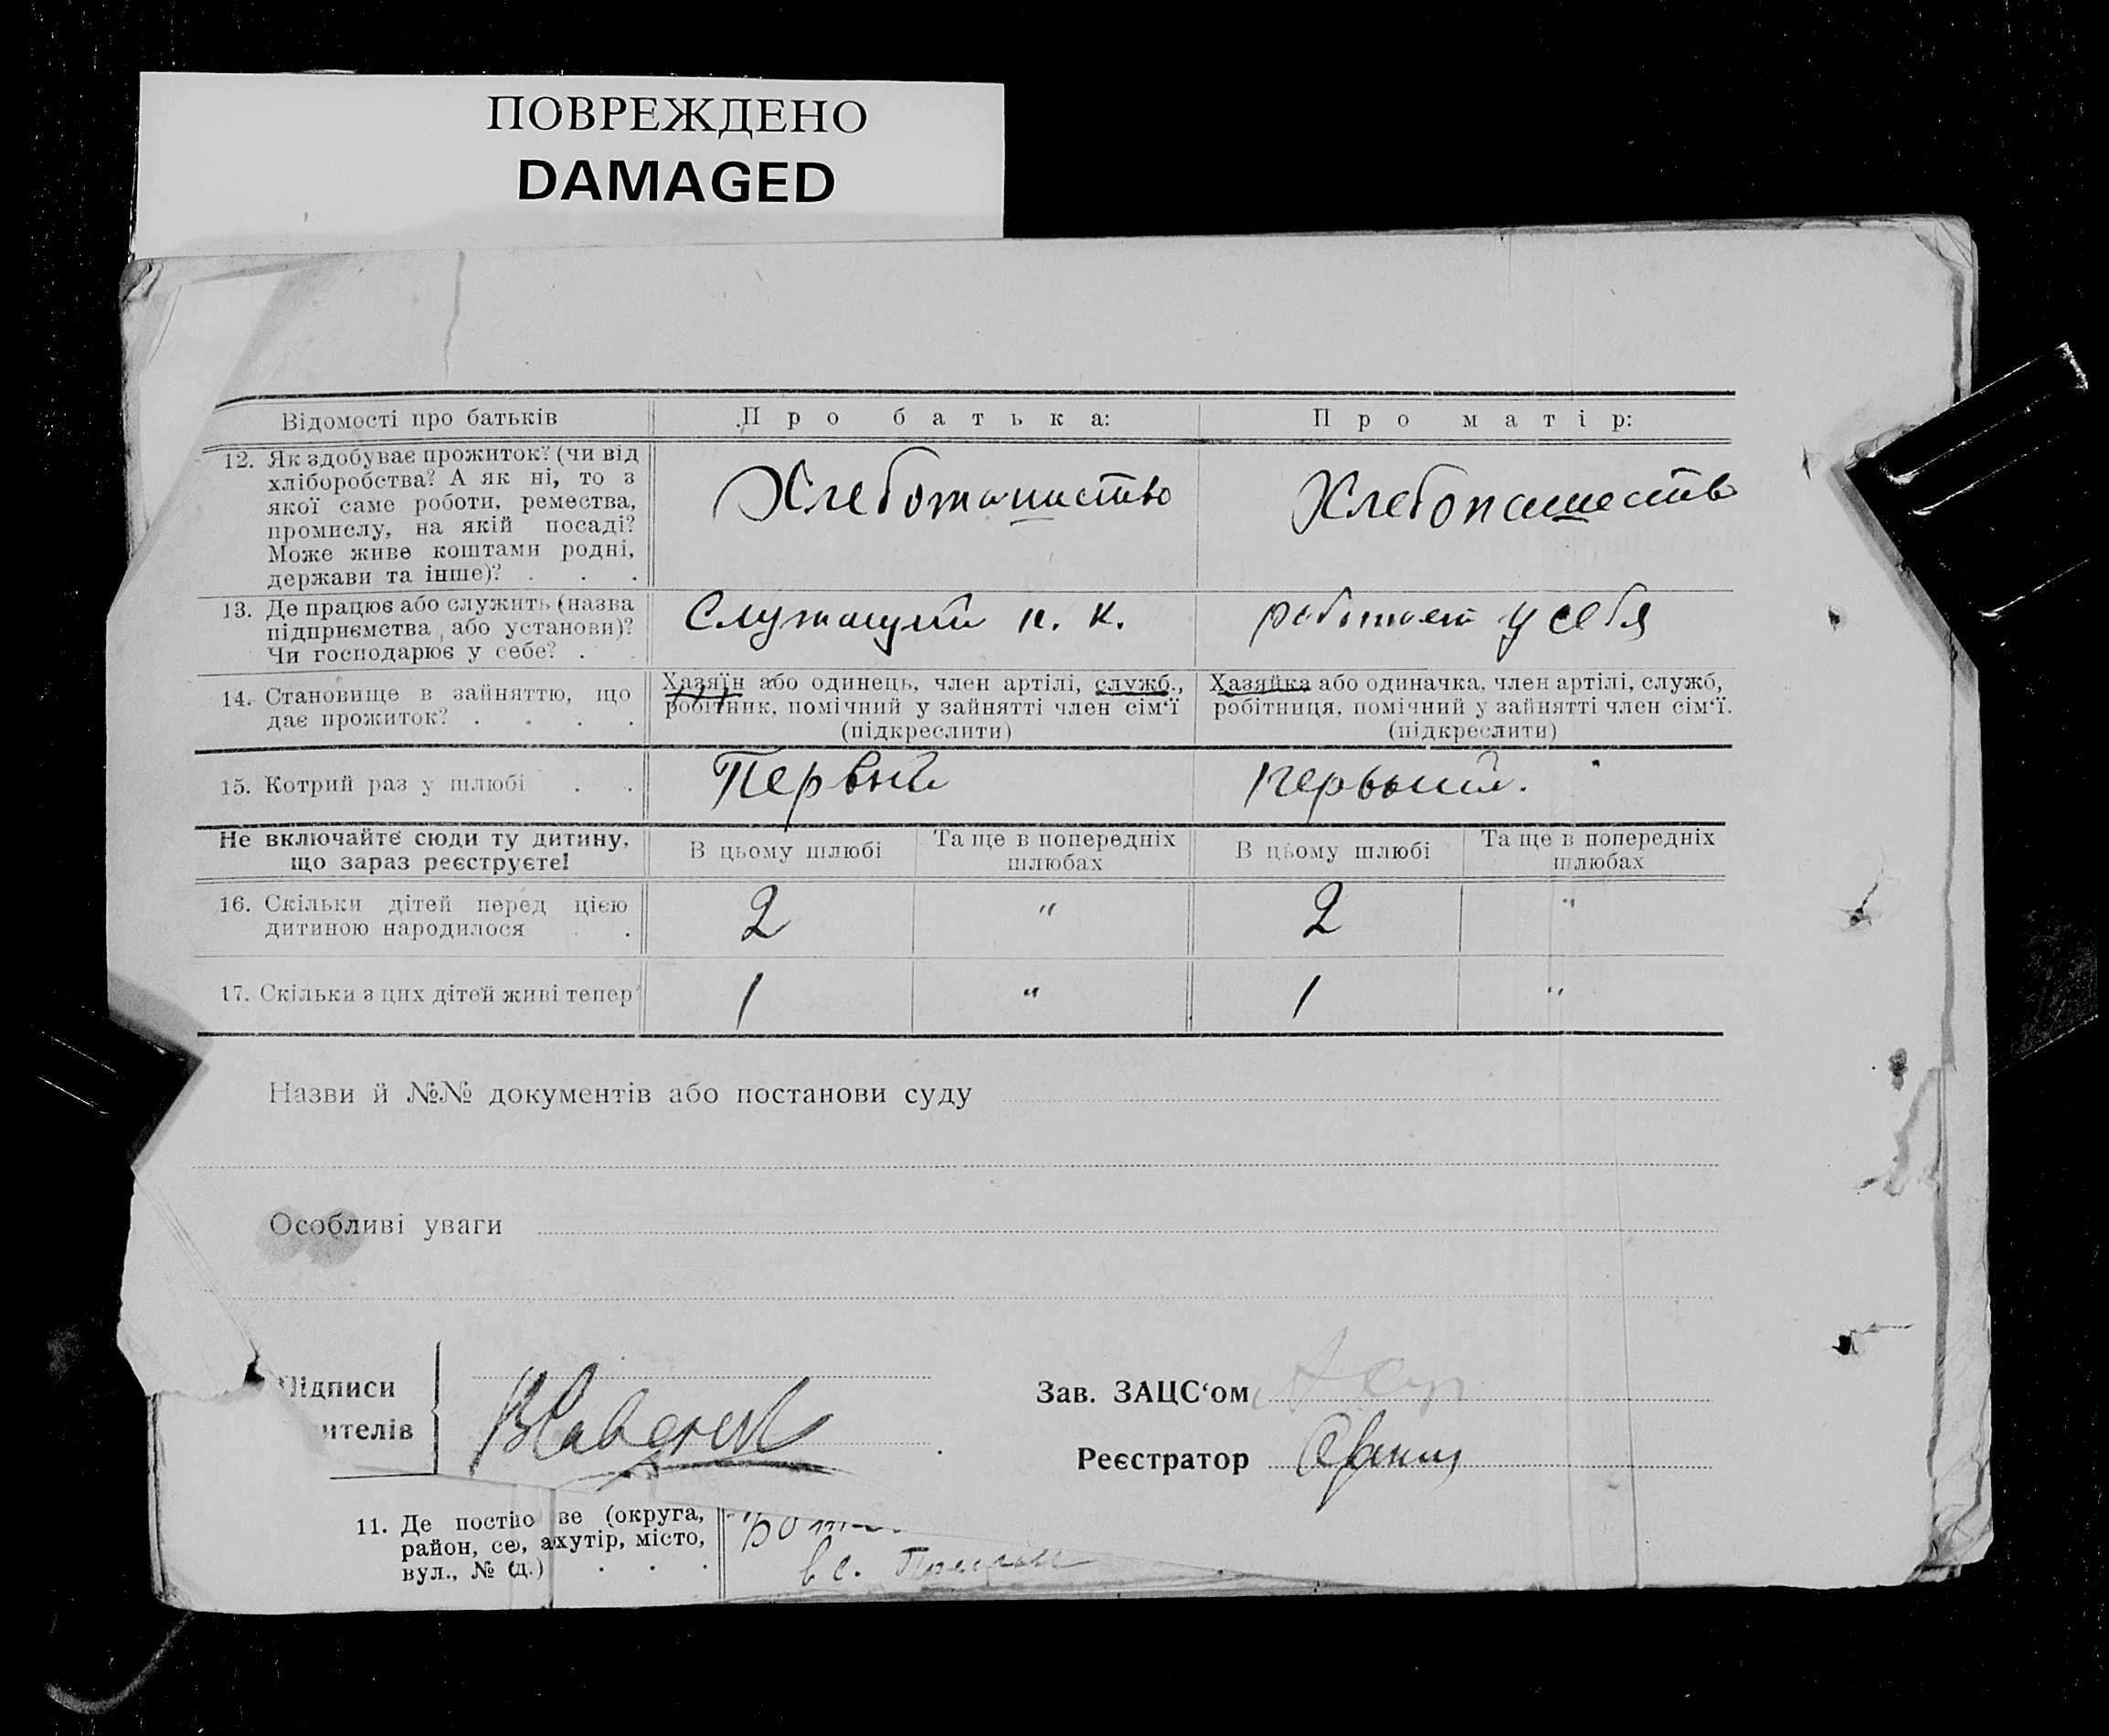 ПОВРЕЖДЕНО
DAMAGED
Відомості про батьків
Про батька:
Про матір:
12. Як здобуває прожиток? (чи від
хліборобства? А як ні, то з
якої саме роботи, ремества,
промислу, на якій посаді?
Може живе коштами родні,
держави та інше)? . . .
Хлебопашество
Хлебопашество
13. Де працює або служить (назва
підприємства, або установи)?
Чи господарює у себе? . .
Служащий к. к.
работает у себя
14. Становище в зайняттю, що
дає прожиток? . . . .
Хазяїн або одинець, член артілі, служб.,
робітник, помічний у зайнятті член сім‘ї
(підкреслити)
Хазяйка або одиначка, член артілі, служб,
робітниця, помічний у зайнятті член сім‘ї.
(підкреслити)
15. Котрий раз у шлюбі . .
Первый
первый.
Не включайте сюди ту дитину,
що зараз реєструєте!
В цьому шлюбі
Та ще в попередніх
шлюбах
В цьому шлюбі
Та ще в попередніх
шлюбах
16. Скільки дітей перед цією
дитиною народилося . .
2
"
2
"
17. Скільки з цих дітей живі тепер?
1
"
1
"
Назви й №№ документів або постанови суду
Особливі уваги
Підписи
ителів
Зав. ЗАЦС‘ом
Реєстратор
11. Де постійно ве (округа,
район, се, ахутір, місто,
вул., № (д.) . . .
в с.